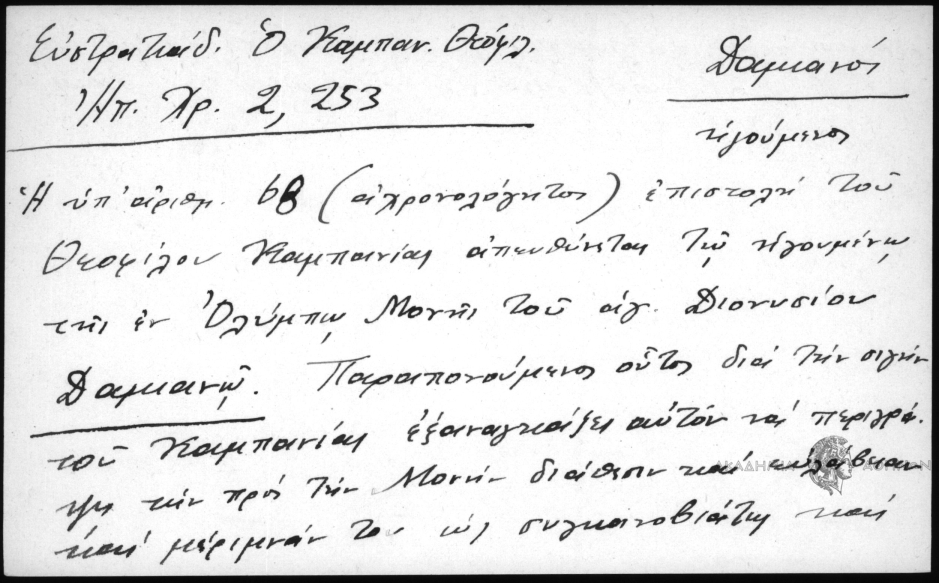 Εὐστρατιάδ. Ὁ Καμπαν. Θεόφιλ.
Ἠπ. Χρ. 2, 253
Δαμιανός
ἡγούμενος
Ἡ ὑπ' ἀριθμ. 68 (ἀχρονολόγητος) ἐπιστολὴ τοῦ
Θεοφίλου Καμπανίας ἀπευθύνεται τῷ ἡγουμένῳ
τῆς ἐν Ὀλύμπῳ Μονῆς τοῦ ἁγ. Διονυσίου
Δαμιανῷ. Παραπονούμενος οὗτος διὰ τὴν σιγὴν
τοῦ Καμπανίας ἐξαναγκάζει αὐτὸν νὰ περιγρά-
ψῃ τὴν πρὸς τὴν Μονὴν διάθεσιν καὶ εὐλάβειαν
καὶ μέριμνάν του ὡς συγκοινοβιάτης καὶ
ΑΚΑΔΗΜΙΑ ΑΘΗΝΩΝ